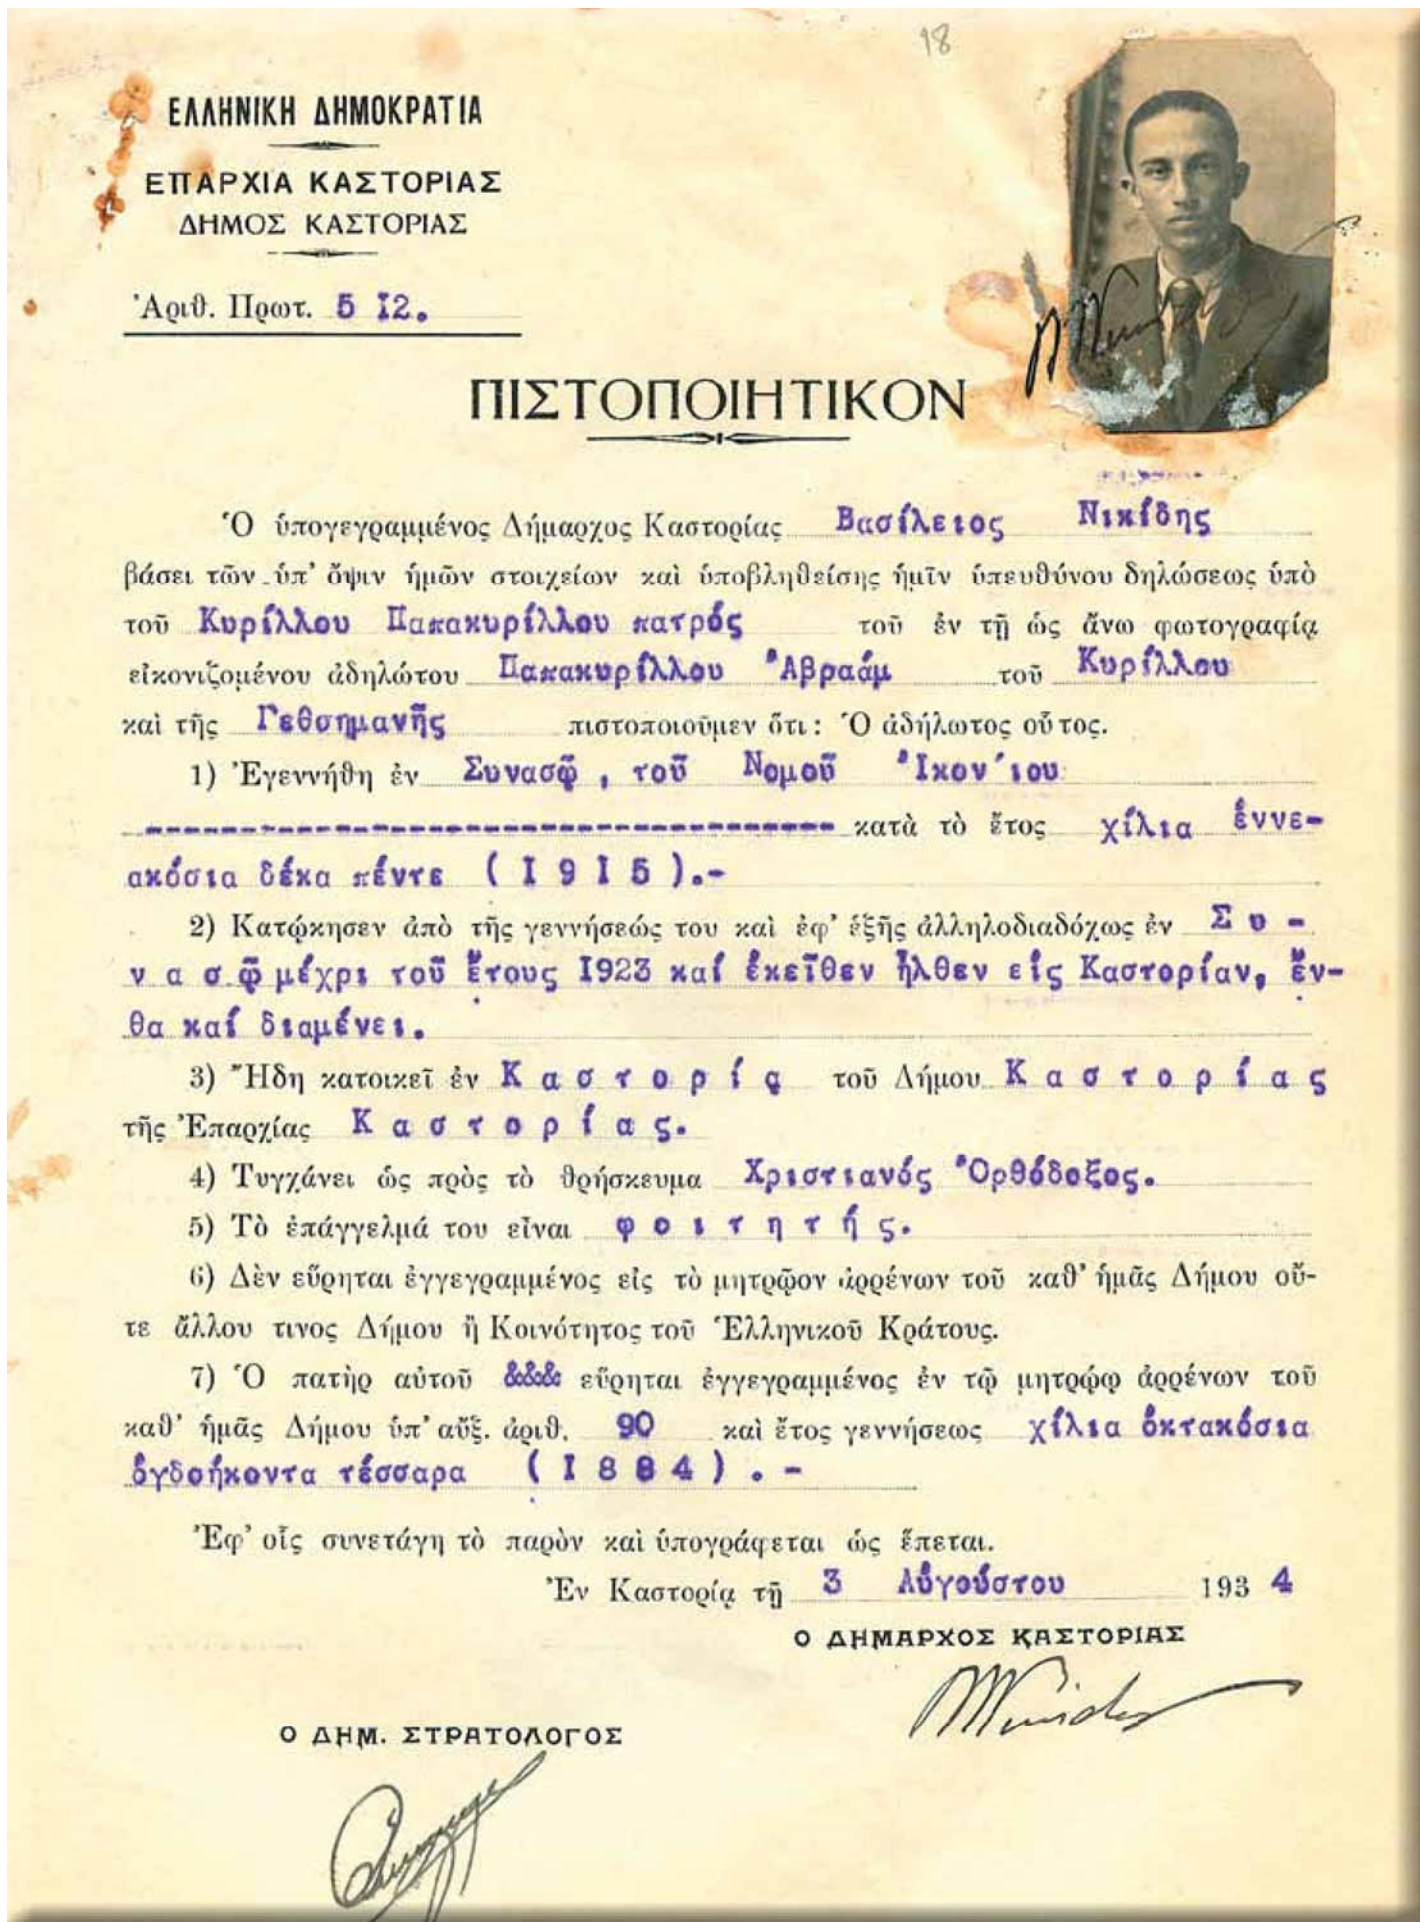 18
ΕΛΛΗΝΙΚΗ ΔΗΜΟΚΡΑΤΙΑ
ΕΠΑΡΧΙΑ ΚΑΣΤΟΡΙΑΣ
ΔΗΜΟΣ ΚΑΣΤΟΡΙΑΣ
Ἀριθ. Πρωτ. 5 I2.
ΠΙΣΤΟΠΟΙΗΤΙΚΟΝ
Ὁ ὑπογεγραμμένος Δήμαρχος Καστορίας Βασίλειος Νικίδης
βάσει τῶν ὑπ' ὄψιν ἡμῶν στοιχείων καὶ ὑποβληθείσης ἡμῖν ὑπευθύνου δηλώσεως ὑπὸ
τοῦ Κυρίλλου Παπακυρίλλου πατρός τοῦ ἐν τῇ ὡς ἄνω φωτογραφίᾳ
εἰκονιζομένου ἀδηλώτου Παπακυρίλλου Ἀβραάμ τοῦ Κυρίλλου
καὶ τῆς Γεθσημανῆς πιστοποιοῦμεν ὅτι: Ὁ ἀδήλωτος οὗτος.
1) Ἐγεννήθη ἐν Συνασῷ , τοῦ Νομοῦ Ἰκον´ιου
κατὰ τὸ ἔτος χίλια ἐννε-
ακόσια δέκα πέντε (I9I5).-
2) Κατῴκησεν ἀπὸ τῆς γεννήσεώς του καὶ ἐφ' ἑξῆς ἀλληλοδιαδόχως ἐν Σ υ -
ν α σ ῷ μέχρι τοῦ ἔτους I923 καί ἐκεῖθεν ἦλθεν εἰς Καστορίαν, ἔν-
θα καί διαμένει.
3) Ἤδη κατοικεῖ ἐν Κ α σ τ ο ρ ί ᾳ τοῦ Δήμου Κ α σ τ ο ρ ί α ς
τῆς Ἐπαρχίας Κ α σ τ ο ρ ί α ς.
4) Τυγχάνει ὡς πρὸς τὸ θρήσκευμα Χριστιανός Ὀρθόδοξος.
5) Τὸ ἐπάγγελμά του εἶναι φ ο ι τ η τ ή ς.
6) Δὲν εὕρηται ἐγγεγραμμένος εἰς τὸ μητρῷον ἀρρένων τοῦ καθ' ἡμᾶς Δήμου οὔ-
τε ἄλλου τινος Δήμου ἢ Κοινότητος τοῦ Ἑλληνικοῦ Κράτους.
7) Ὁ πατὴρ αὐτοῦ εὕρηται ἐγγεγραμμένος ἐν τῷ μητρῴῳ ἀρρένων τοῦ
καθ' ἡμᾶς Δήμου ὑπ' αὔξ. ἀριθ. 90 καὶ ἔτος γεννήσεως χίλια ὀκτακόσια
ὀγδοήκοντα τέσσαρα (I884).-
Ἐφ' οἷς συνετάγη τὸ παρὸν καὶ ὑπογράφεται ὡς ἕπεται.
Ἐν Καστορίᾳ τῇ 3 Αὐγούστου 193 4
Ο ΔΗΜΑΡΧΟΣ ΚΑΣΤΟΡΙΑΣ
Ο ΔΗΜ. ΣΤΡΑΤΟΛΟΓΟΣ